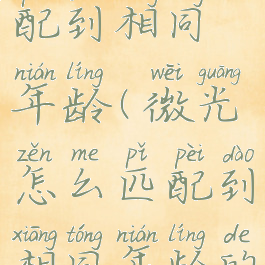 配到相同
nián líng wēi guāng
年龄(微光
zěn me pǐ pèi dào
怎么匹配到
xiāng tóng nián líng de
相同年龄的